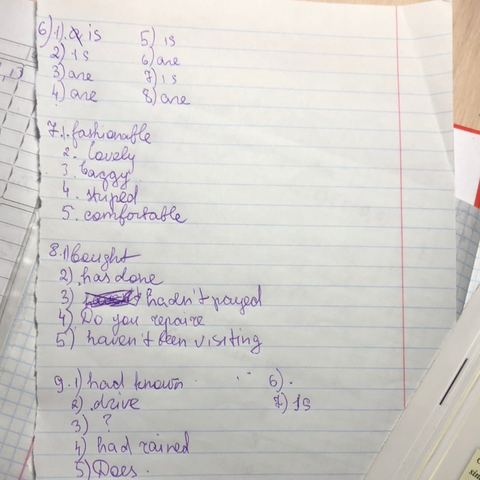 6) 1) is
2) is
3) are
4) are
5) is
6) are
7) is
8) are
7.1. fashionable
2. lovely
3. baggy
4. striped
5. comfortable
8.1) bought
2) has done
3) hadn't payed
4) Do you repaire
5) haven't been visiting
9. 1) had known
2) drive
3) ?
4) had rained
5) Does
6) .
7) is